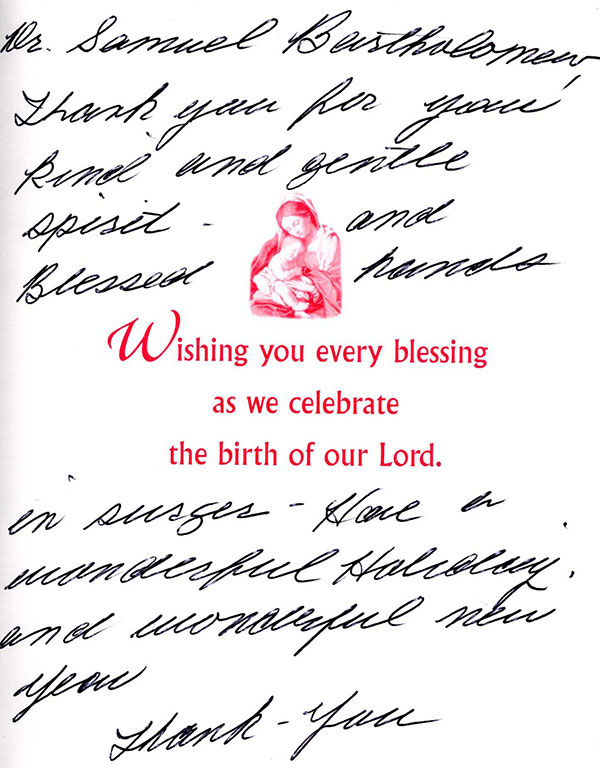 Dr. Samuel Bartholomew,
Thank you for your
kind and gentle
spirit - and
Blessed hands
Wishing you every blessing
as we celebrate
the birth of our Lord.
in surger - Have a
wonderful Holiday.
and wonderful new
year
Thank-You